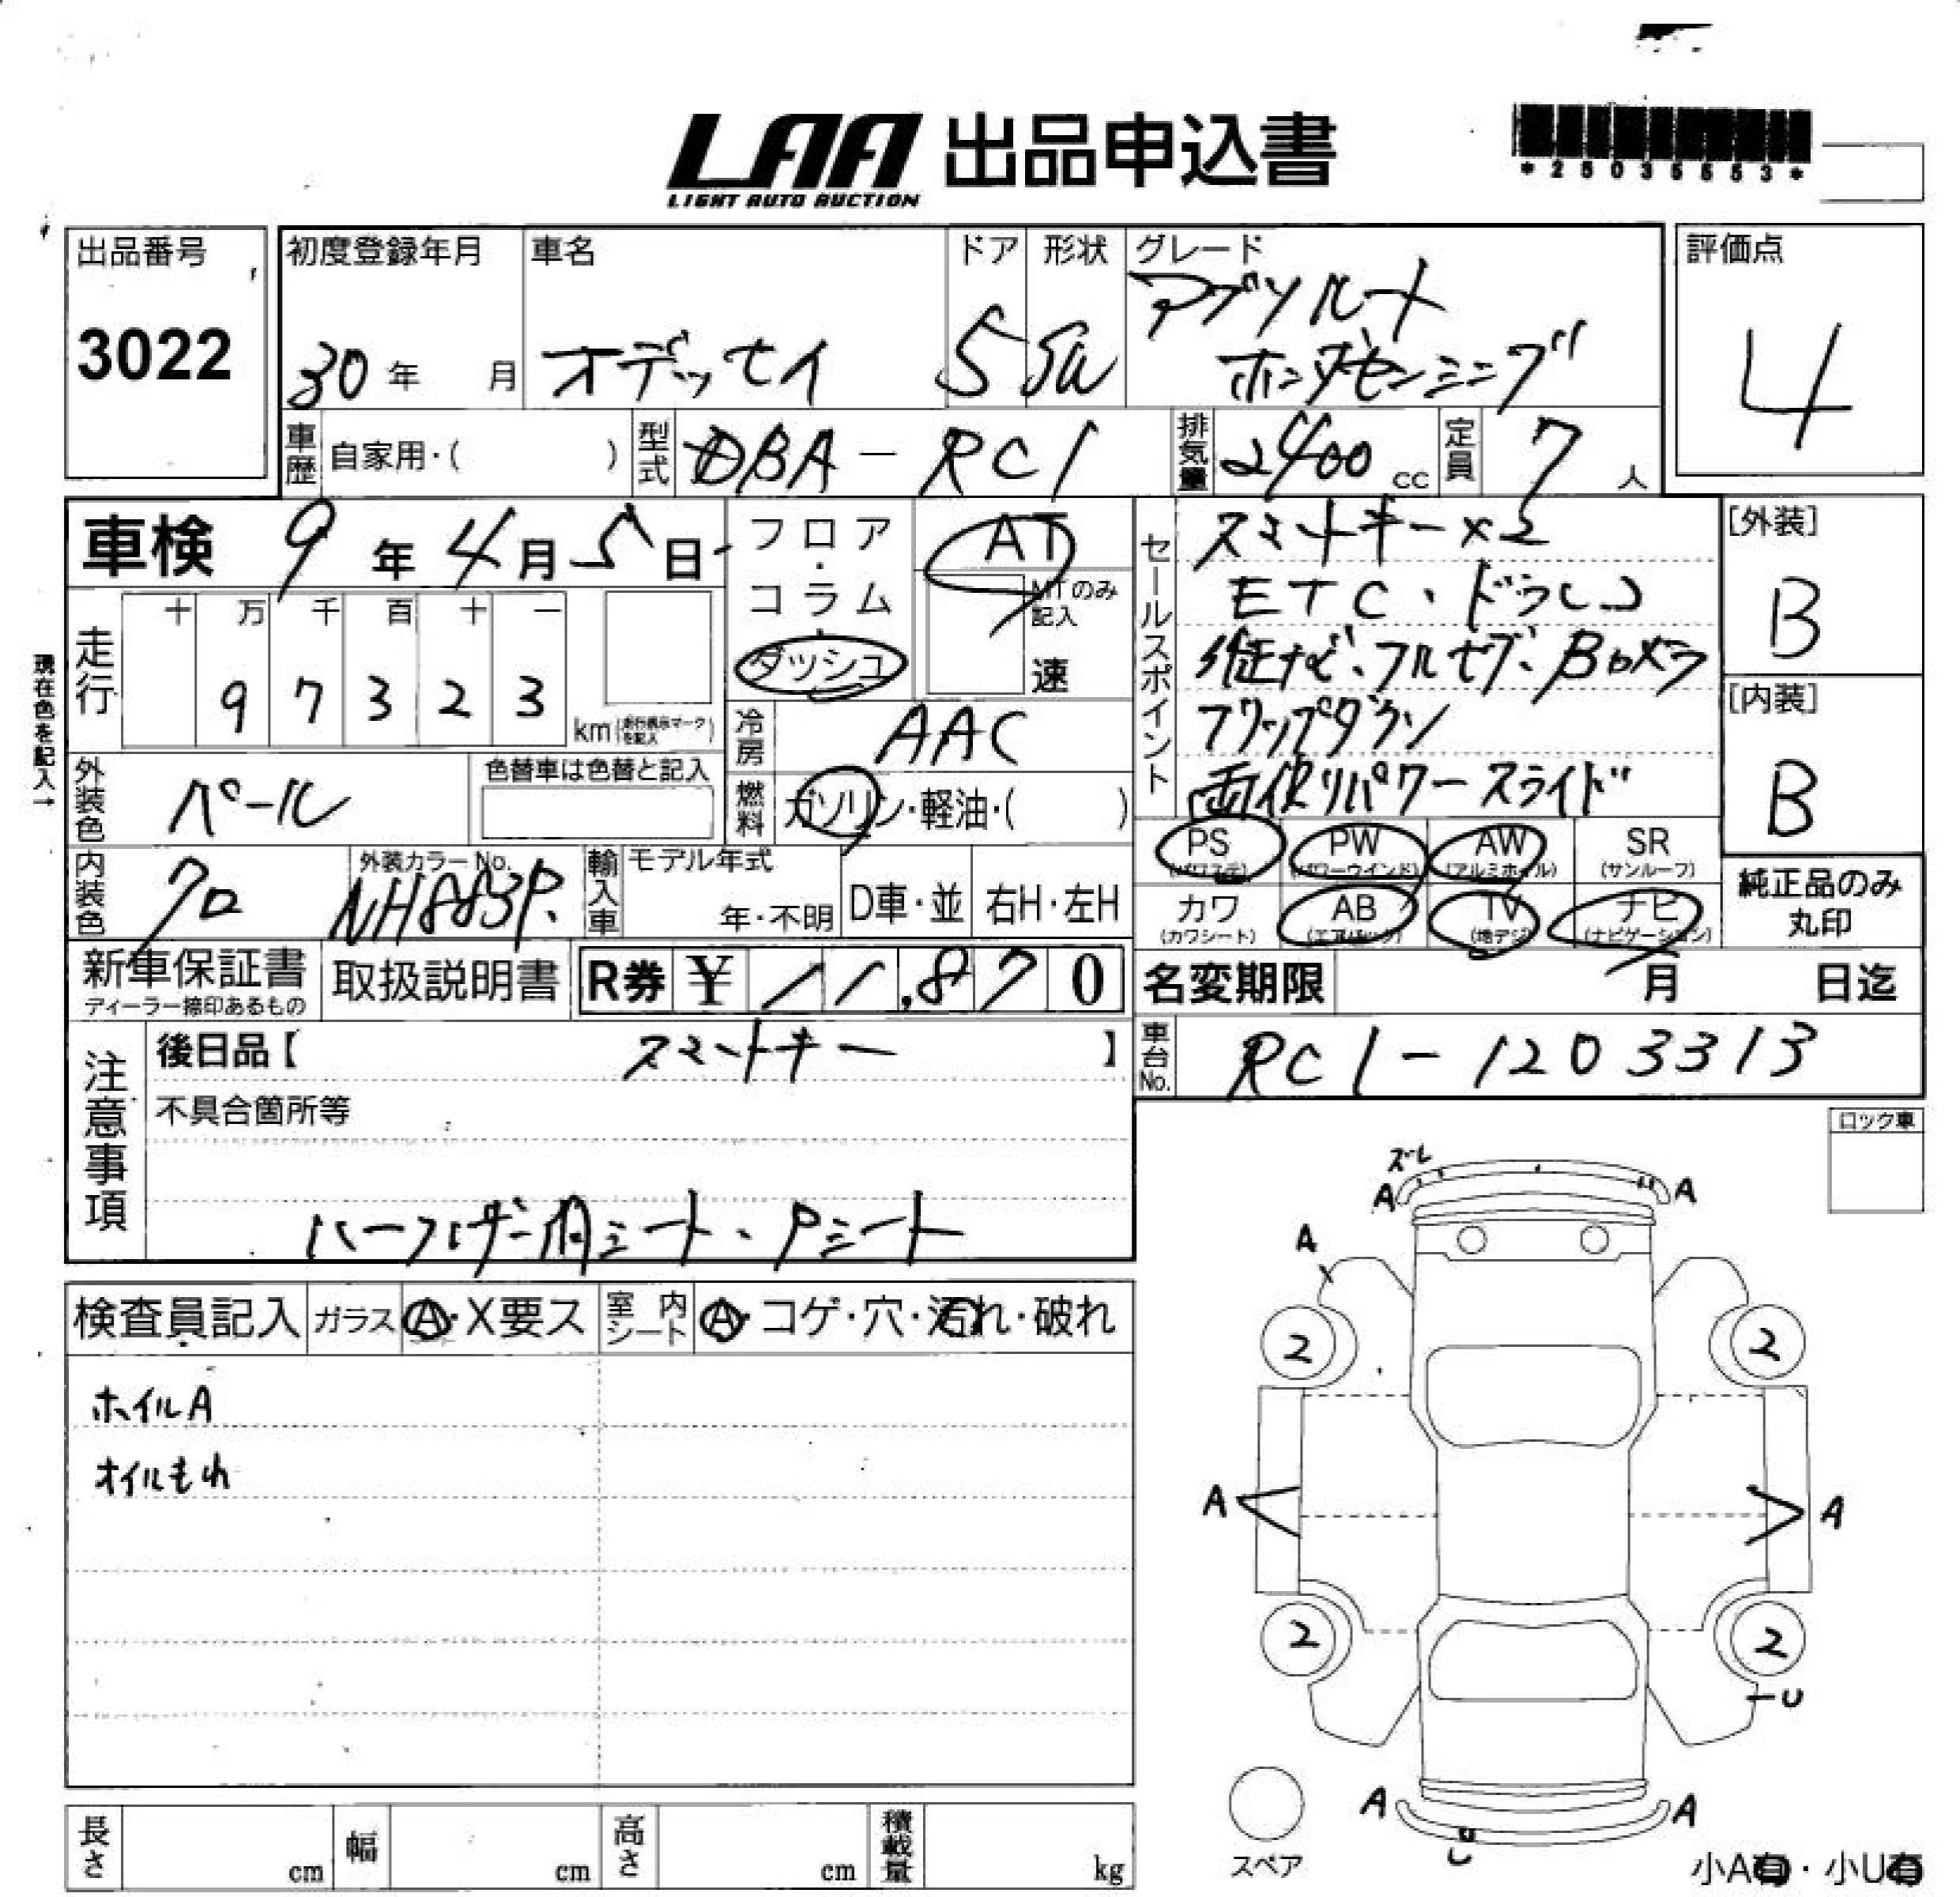 LAA 出品申込書
LIGHT AUTO AUCTION
出品番号
3022
初度登録年月
30年 月
車名
オデッセイ
ドア
5
形状
SW
グレード
アブソルート
ホンダセンシング
評価点
4
車歴 自家用・( )
型式 DBA-RC1
排気量 2400 cc
定員 7人
車検 9年4月5日
フロア・コラム・ダッシュ
AT
MTのみ記入
速
走行
十 万 千 百 十 一
9 7 3 2 3
km(走行表示マークを記入)
現在色を記入→
冷房 AAC
燃料 ガソリン・軽油・( )
外装色 パール
色替車は色替と記入
内装色 クロ
外装カラーNo.
NH883P
輸入車
モデル年式
年・不明
D車・並
右H・左H
セールスポイント
スマートキー×2
ETC・ドラレコ
純ナビ、フルセグ、Bカメラ
フリップダウン
両側パワースライド
[外装]
B
[内装]
B
PS
(パワステ)
PW
(パワーウインド)
AW
(アルミホイル)
SR
(サンルーフ)
カワ
(カワシート)
AB
(エアバック)
TV
(地デジ)
ナビ
(ナビゲーション)
純正品のみ
丸印
新車保証書
ディーラー捺印あるもの
取扱説明書
R券 ¥ 11,870
名変期限 月 日迄
車台No. RC1-1203313
注意事項
後日品【 スマートキー 】
不具合箇所等
ハーフレザー調シート、Pシート
ロック車
検査員記入
ガラス A・X要ス
室内シート A・コゲ・穴・汚れ・破れ
ホイルA
オイルもれ
ズレ
A
A
A
2
2
A
A
2
2
U
A
A
U
スペア
小A有・小U有
長さ cm
幅 cm
高さ cm
積載量 kg